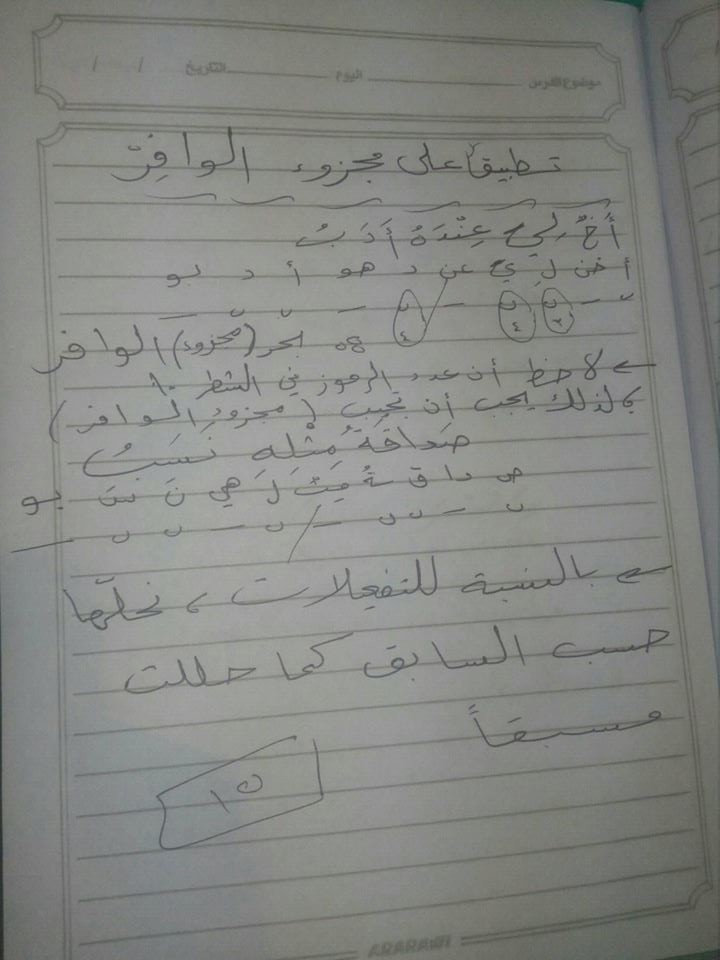 موضوع الدرس اليوم التاريخ / /
تطبيقاً على مجزوء الوافِر
أَخٌ لِي عِنْدَهُ أَدَبُ
أ خن لِ ي عن د هو أ د بو
ب - - ب ب - ب - - ب ب -
٢ ٤ ٤
بحر (مجزوء) الوافر
لاحظ أن عدد الرموز في الشطر ١٠
لذلك يجب أن نجيب (مجزوء الوافر)
صَداقَةُ مثْلِه نَسَبُ
ص دا ق ةُ مِثْ لِ هي نَ سَ بو
ب - ب ب - / ب - ب ب -
بالنسبة للتفعيلات، نحلّها
حسب السابق كما حللت
مسبقاً
١٥
ARARAWI